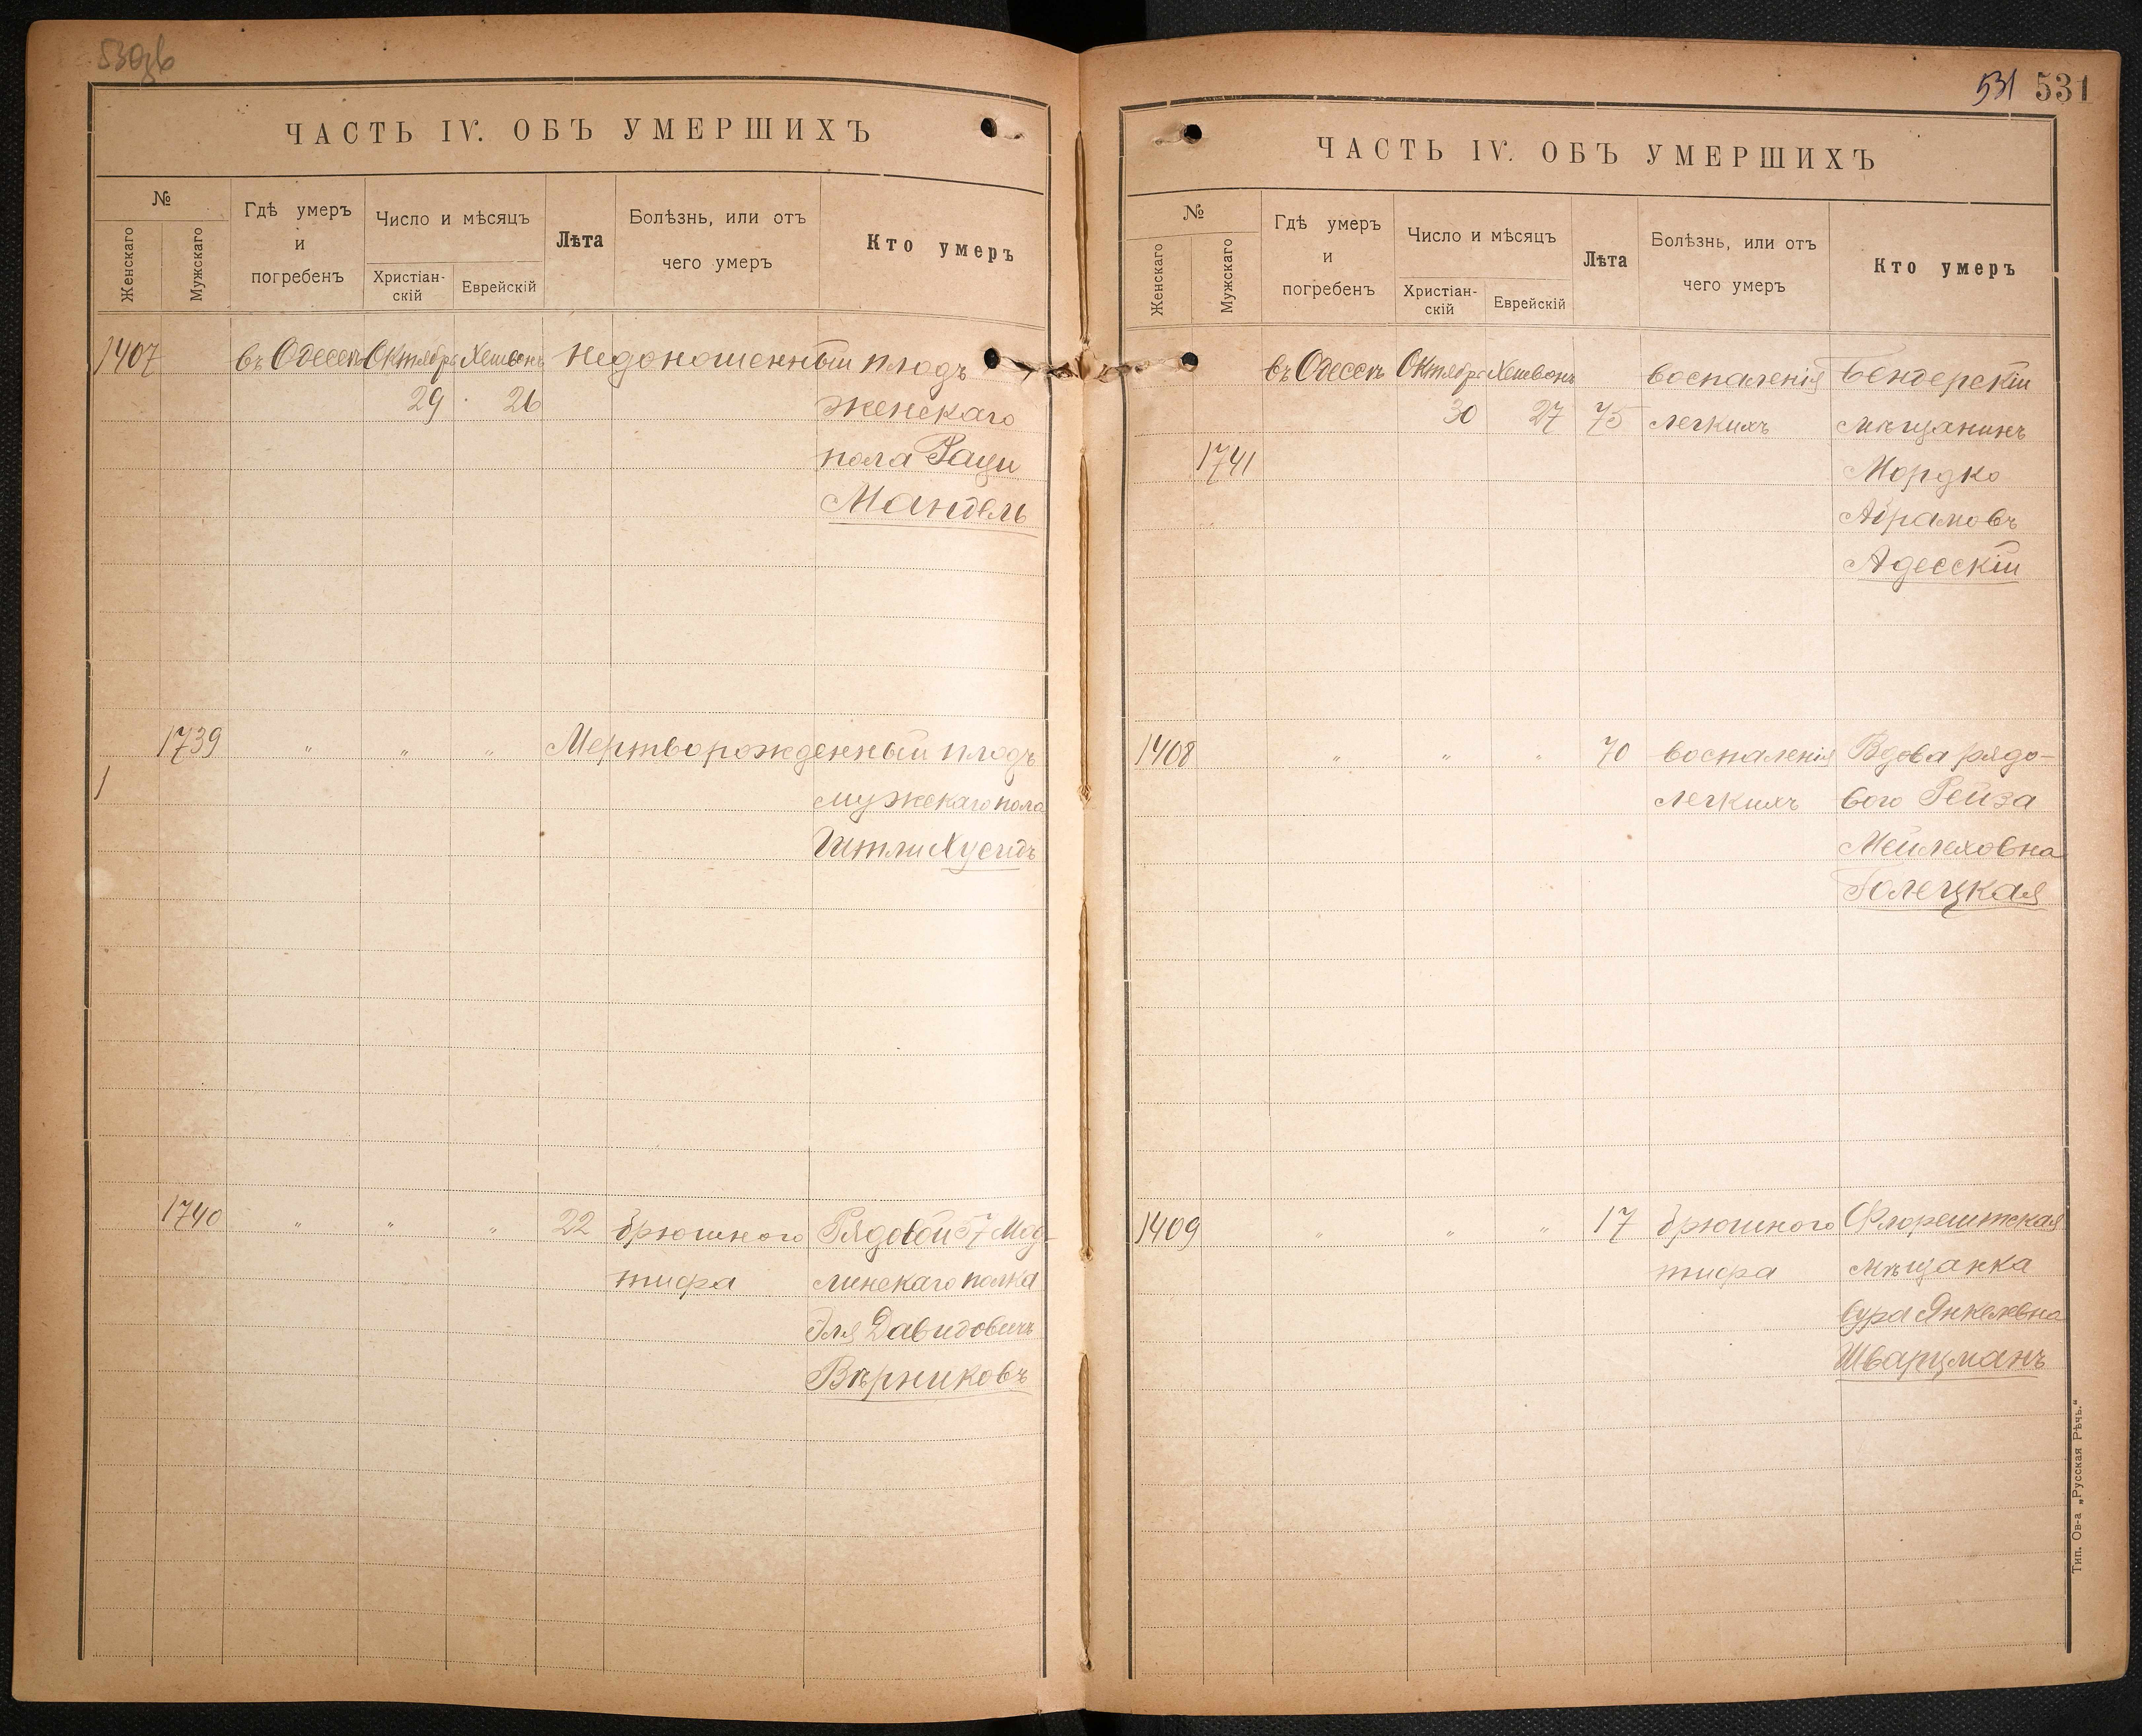 530зб
ЧАСТЬ IV. ОБЪ УМЕРШИХЪ
№
Женскаго
Мужскаго
Гдѣ умеръ
и
погребенъ
Число и мѣсяцъ
Христіан-
скій
Еврейскій
Лѣта
Болѣзнь, или отъ
чего умеръ
Кто умеръ
1407 въ Одессѣ Октябрь Хешвонъ Недоношенный плодъ
29 26 женскаго
пола Раци
Мандель
1739 " " " Мертворожденный плодъ
мужскаго пола
Итли Хусидъ
1740 " " " 22 брюшного Рядовой 57 Мод-
тифа линскаго полка
Эля Давидовичъ
Вѣрниковъ
531 531
ЧАСТЬ IV. ОБЪ УМЕРШИХЪ
№
Женскаго
Мужскаго
Гдѣ умеръ
и
погребенъ
Число и мѣсяцъ
Христіан-
скій
Еврейскій
Лѣта
Болѣзнь, или отъ
чего умеръ
Кто умеръ
въ Одессѣ Октябрь Хешвонъ воспаленія Бендерскій
30 27 75 легкихъ мѣщанинъ
1741 Мордко
Абрамовъ
Адесскій
1408 " " " 70 воспаленія Вдова рядо-
легкихъ вого Рейза
Мейлеховна
Голецкая
1409 " " " 17 брюшного Флорештская
тифа мѣщанка
Сура Янкелевна
Шварцманъ
Тип. Ов-а „Русская Рѣчь."